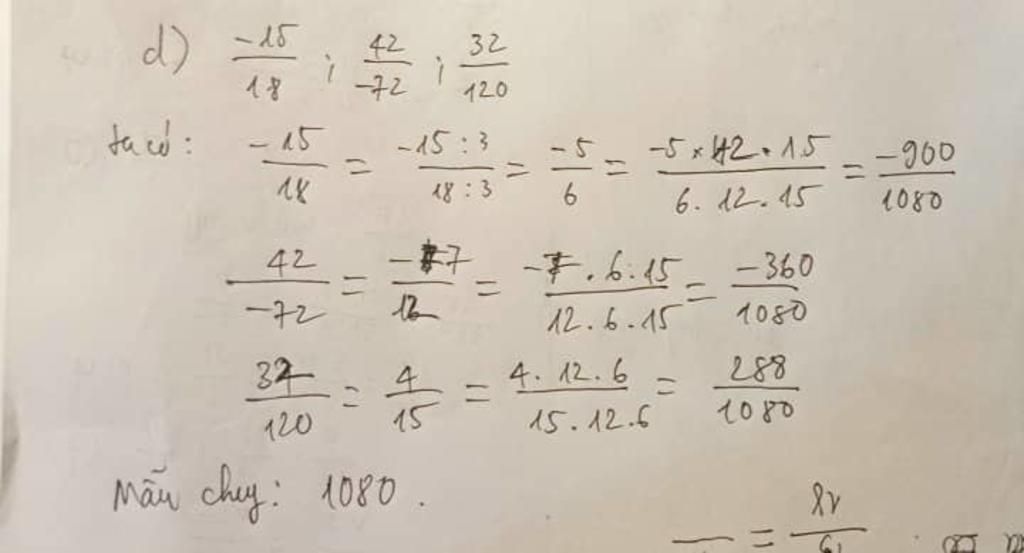 d) -15/18 ; 42/-72 ; 32/120
ta có: -15/18 = -15 : 3/18 : 3 = -5/6 = -5 × 12 . 15/6 . 12 . 15 = -900/1080
42/-72 = -7/12 = -7 . 6 . 15/12 . 6 . 15 = -360/1080
32/120 = 4/15 = 4 . 12 . 6/15 . 12 . 6 = 288/1080
Mẫu chung: 1080 .
=